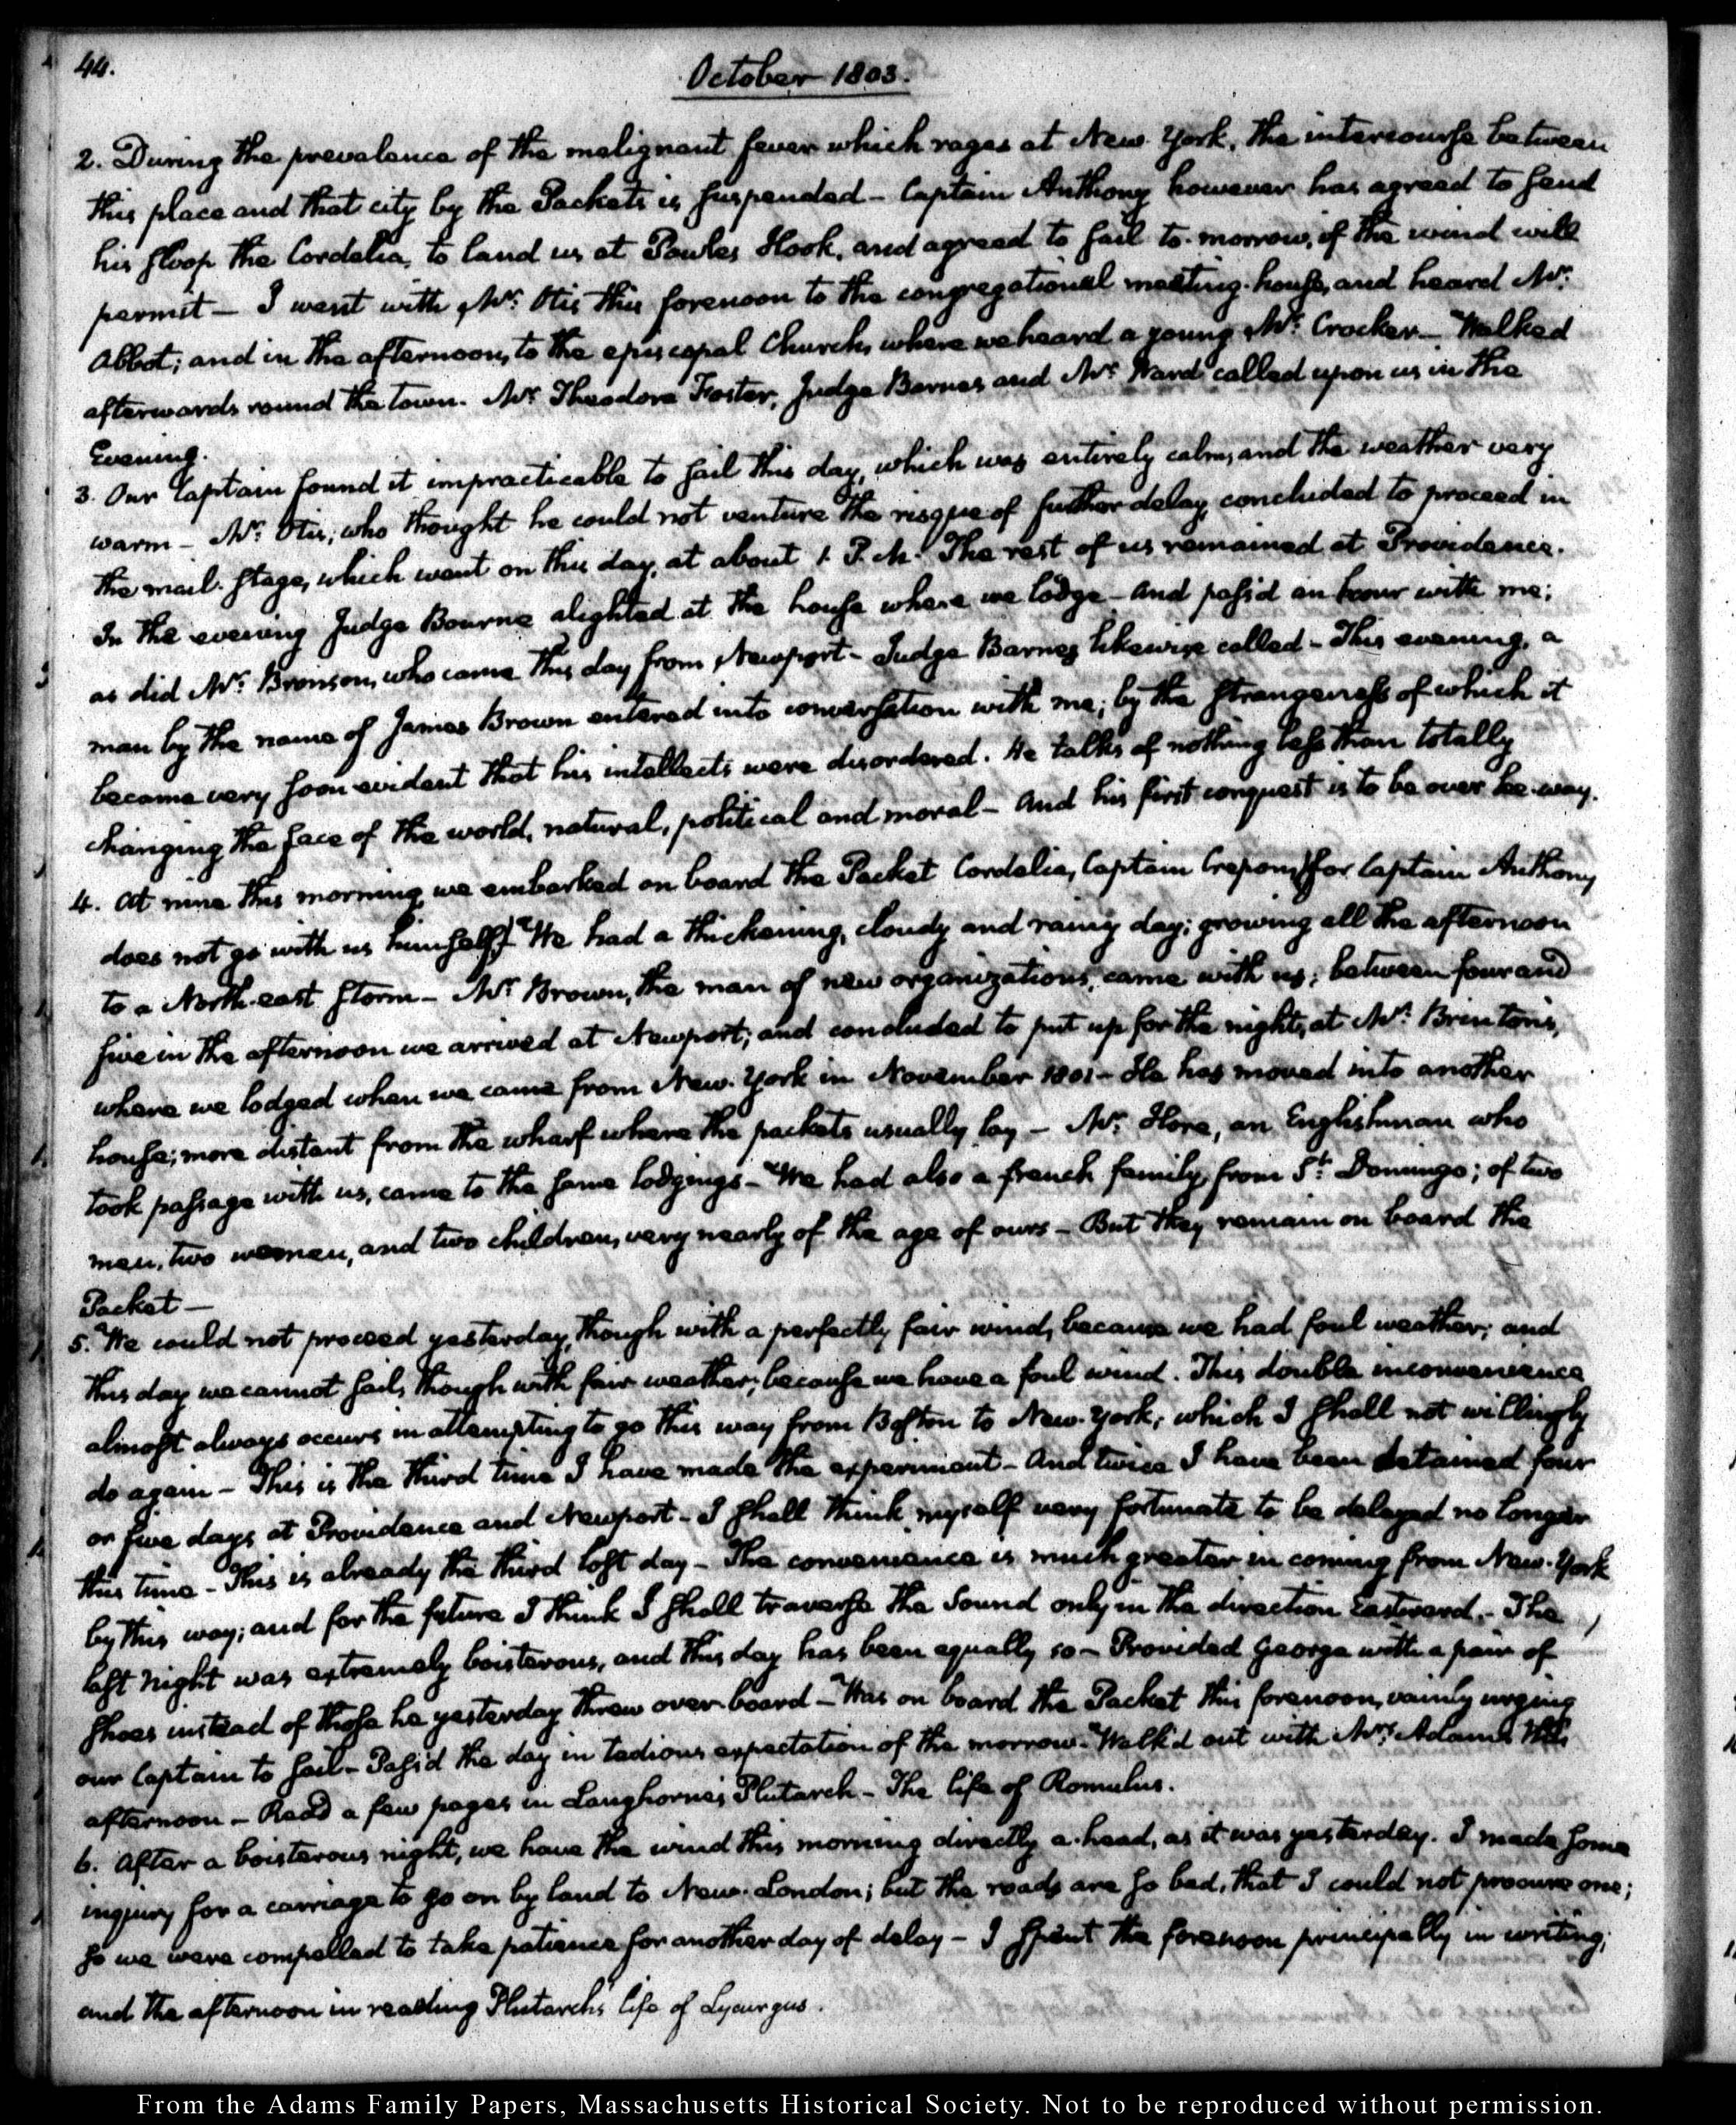 44.
October 1803.
2. During the prevalence of the malignant fever which rages at New-York, the intercourse between
this place and that city by the Packets is suspended - Captain Anthony however has agreed to send
his sloop the Cordelia, to land us at Powles Hook, and agreed to sail to-morrow, if the wind will
permit — I went with Mr: Otis this forenoon to the congregational meeting-house, and heard Mr:
Abbot; and in the afternoon, to the episcopal Church, where we heard a young Mr: Crocker — Walked
afterwards round the town. Mr: Theodore Foster, Judge Barnes and Mr: Ward called upon us in the
Evening.
3. Our Captain found it impracticable to sail this day, which was entirely calm, and the weather very
warm - Mr: Otis, who thought he could not venture the risque of further delay, concluded to proceed in
the mail-stage, which went on this day, at about 1. P.M. The rest of us remained at Providence.
In the evening Judge Bourne alighted at the house where we lodge - And pass'd an hour with me;
as did Mr: Bronson, who came this day from Newport - Judge Barnes likewise called - This evening, a
man by the name of James Brown entered into conversation with me; by the strangeness of which it
became very soon evident that his intellects were disordered. He talks of nothing less than totally
changing the face of the world, natural, political and moral - And his first conquest is to be over
4. At nine this morning we embarked on board the Packet Cordelia, Captain (for Captain Anthony
does not go with us himself) We had a thickening, cloudy and rainy day; growing all the afternoon
to a North-east storm - Mr: Brown, the man of new organizations, came with us; between four and
five in the afternoon we arrived at Newport; and concluded to put up for the night, at Mr: Brinton's,
where we lodged when we came from New-York in November 1801 - He has moved into another
house; more distant from the wharf where the packets usually lay - Mr: Hore, an Englishman who
took passage with us, came to the same lodgings - We had also a french family from St: Domingo; of two
men, two women, and two children, very nearly of the age of ours - But they remain on board the
Packet —
5. We could not proceed yesterday, though with a perfectly fair wind, because we had foul weather; and
this day we cannot sail, though with fair weather; because we have a foul wind. This double inconvenience
almost always occurs in attempting to go this way from Boston to New-York; which I shall not willingly
do again - This is the third time I have made the experiment - And twice I have been detained four
or five days at Providence and Newport - I shall think myself very fortunate to be delayed no longer
this time - This is already the third lost day - The convenience is much greater in coming from New-York
by this way; and for the future I think I shall traverse the Sound only in the direction Eastward. - The
last night was extremely boisterous, and this day has been equally so - Provided George with a pair of
shoes instead of those he yesterday threw over-board - Was on board the Packet this forenoon, vainly urging
our Captain to sail - Pass'd the day in tedious expectation of the morrow - Walk'd out with Mrs: Adams this
afternoon - Read a few pages in Langhorne's Plutarch - The life of Romulus.
6. After a boisterous night, we have the wind this morning directly a-head, as it was yesterday. I made some
inquiry for a carriage to go on by land to New-London; but the roads are so bad, that I could not procure one;
so we were compelled to take patience for another day of delay - I spent the forenoon principally in writing;
and the afternoon in reading Plutarch's life of Lycurgus.
From the Adams Family Papers, Massachusetts Historical Society. Not to be reproduced without permission.